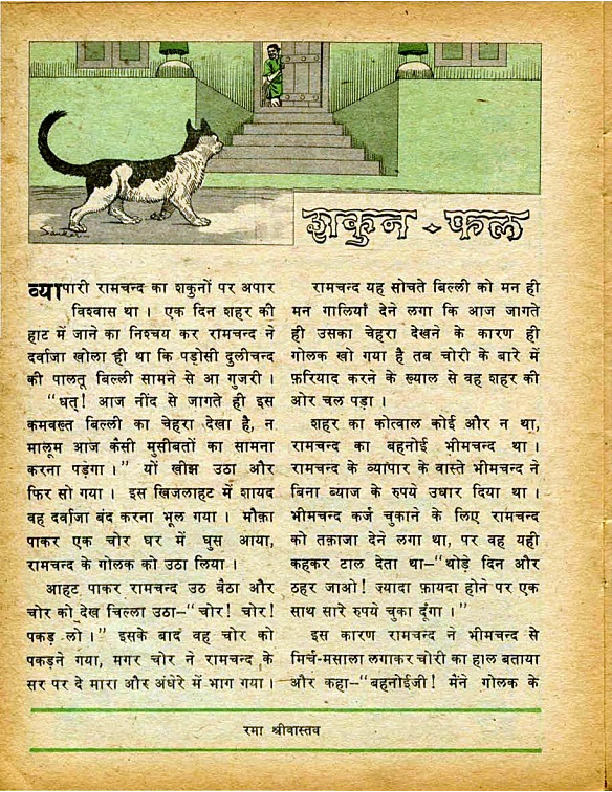 Sankar
शकुन - फल
व्यापारी रामचन्द का शकुनों पर अपार
विश्वास था । एक दिन शहर की
हाट में जाने का निश्चय कर रामचन्द ने
दर्वाजा खोला ही था कि पड़ोसी दुलीचन्द
की पालतू बिल्ली सामने से आ गुजरी ।
“धत्! आज नींद से जागते ही इस
कमवख्त बिल्ली का चेहरा देखा है, न
मालूम आज कैसी मुसीबतों का सामना
करना पड़ेगा ।” यों खीझ उठा और
फिर सो गया । इस खिजलाहट में शायद
वह दर्वाजा बंद करना भूल गया । मौक़ा
पाकर एक चोर घर में घुस आया,
रामचन्द के गोलक को उठा लिया ।
आहट पाकर रामचन्द उठ बैठा और
चोर को देख चिल्ला उठा–“चोर! चोर!
पकड़ लो ।” इसके बाद वह चोर को
पकड़ने गया, मगर चोर ने रामचन्द के
सर पर दे मारा और अंधेरे में भाग गया ।
रामचन्द यह सोचते बिल्ली को मन ही
मन गालियाँ देने लगा कि आज जागते
ही उसका चेहरा देखने के कारण ही
गोलक खो गया है तब चोरी के बारे में
फ़रियाद करने के ख्याल से वह शहर की
ओर चल पड़ा ।
शहर का कोत्वाल कोई और न था,
रामचन्द का बहनोई भीमचन्द था ।
रामचन्द के व्यापार के वास्ते भीमचन्द ने
बिना ब्याज के रुपये उधार दिया था ।
भीमचन्द कर्ज चुकाने के लिए रामचन्द
को तक़ाजा देने लगा था, पर वह यही
कहकर टाल देता था–“थोड़े दिन और
ठहर जाओ! ज्यादा फ़ायदा होने पर एक
साथ सारे रुपये चुका दूँगा ।”
इस कारण रामचन्द ने भीमचन्द से
मिर्च-मसाला लगाकर चोरी का हाल बताया
और कहा–“बहनोईजी! मैंने गोलक के
रमा श्रीवास्तव